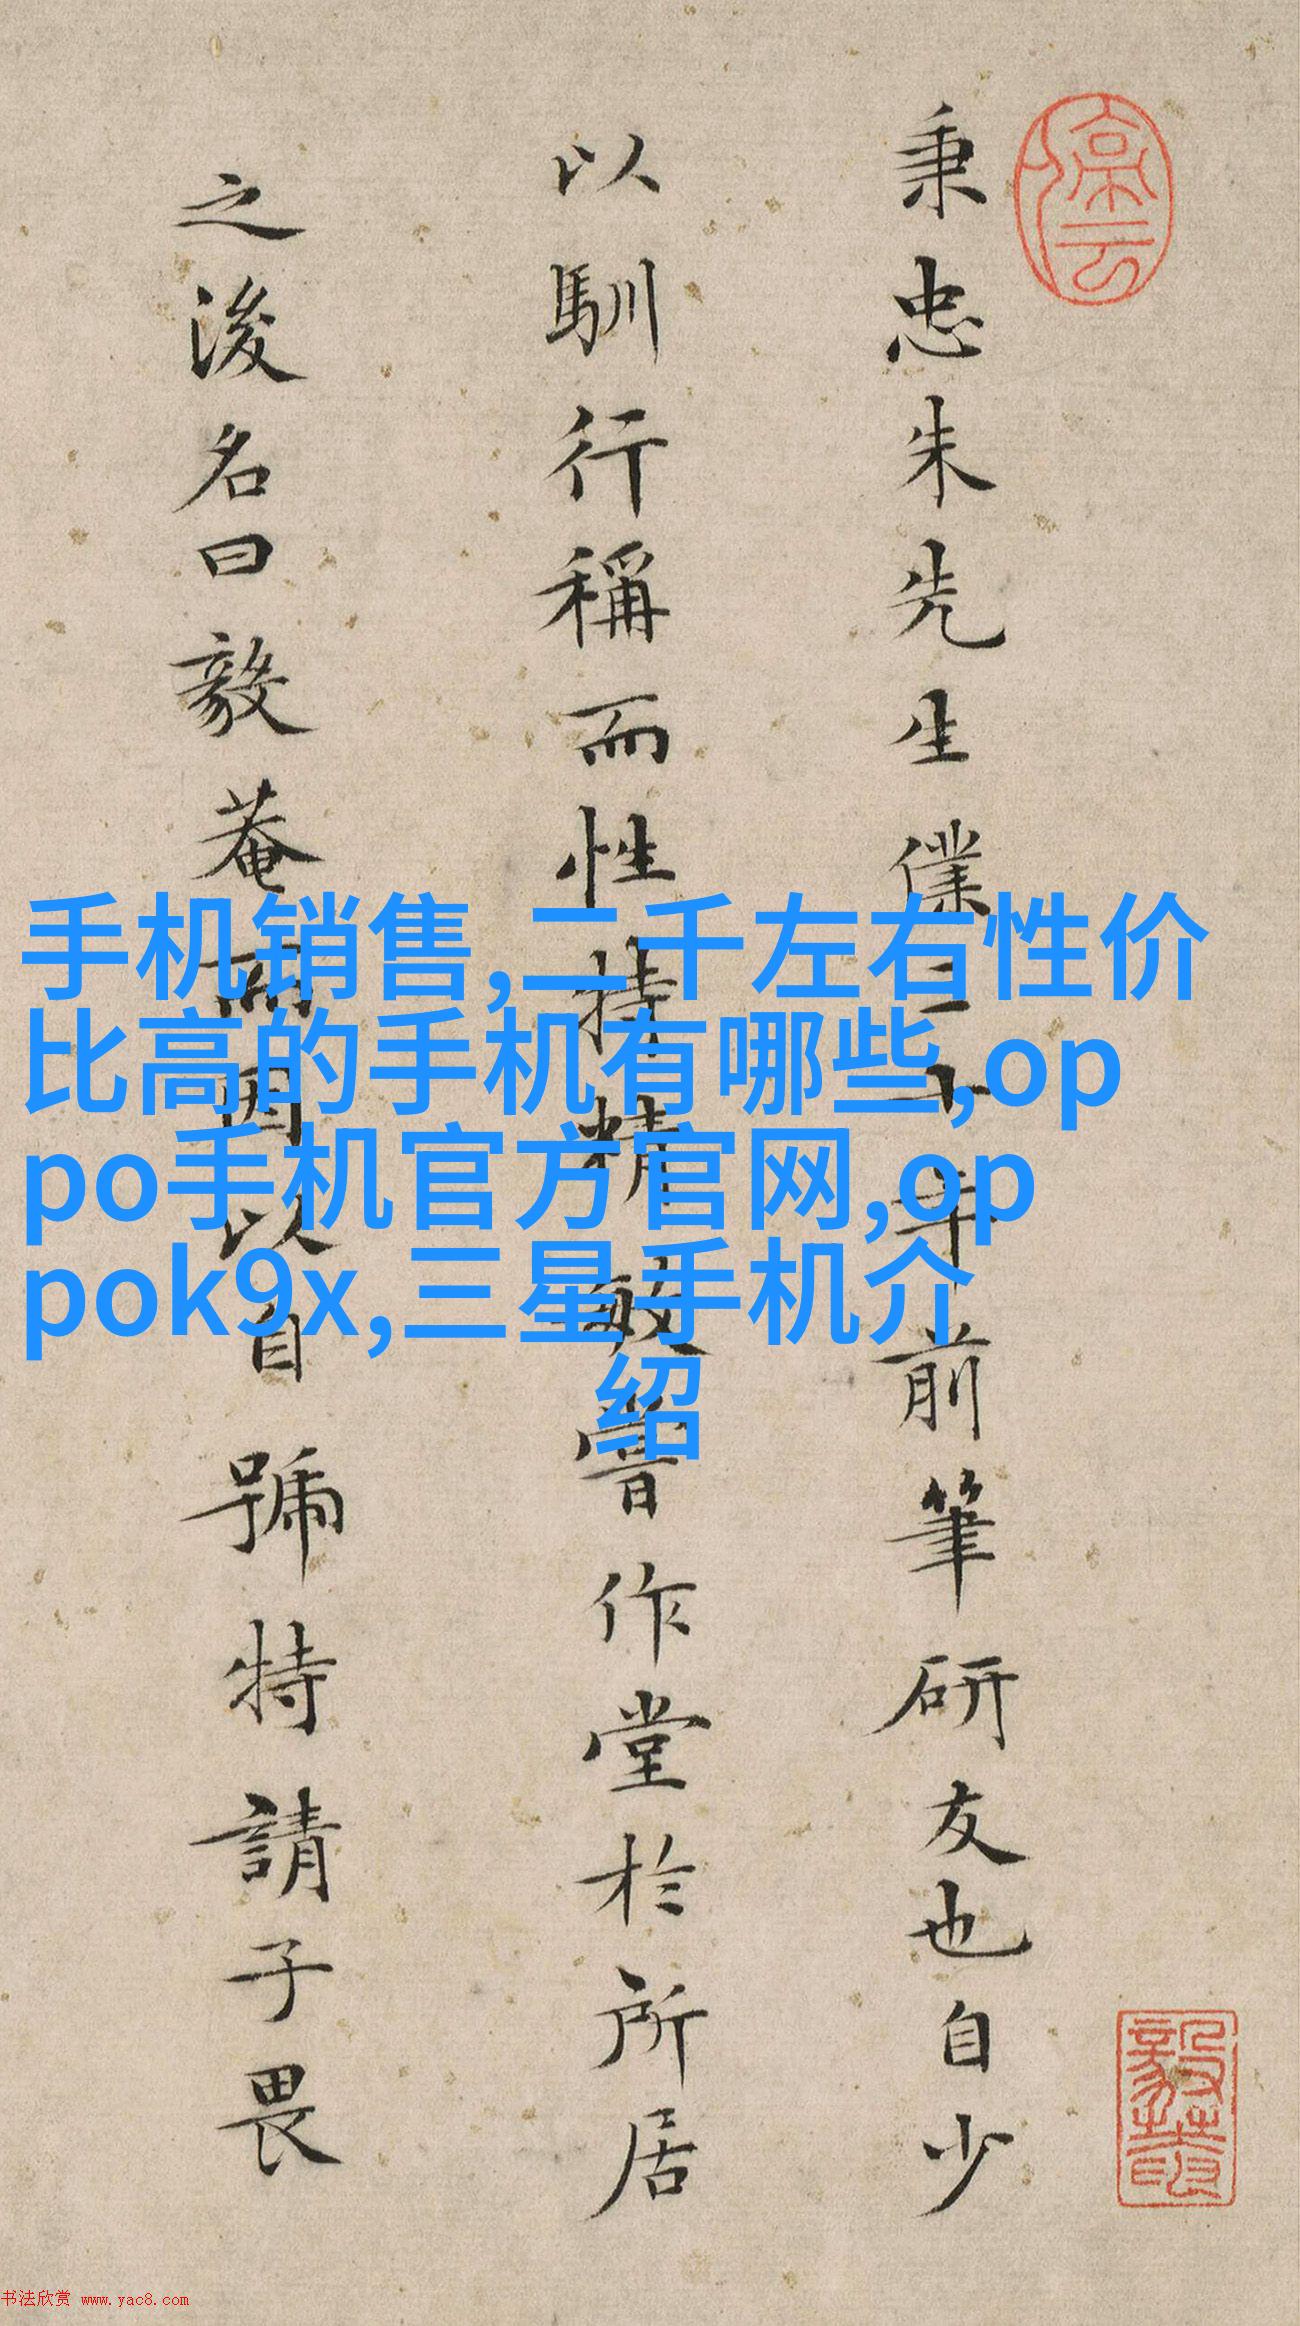 秉忠朱先生僕二十年前筆研友也自少
以馴行稱而性特精敏嘗作堂於所居
之後名曰毅菴而因以自號特請子畏
手机销售,二千左右性价
比高的手机有哪些,op
po手机官方官网,op
pok9x,三星手机介
绍
书法欣赏 www.yac8.com